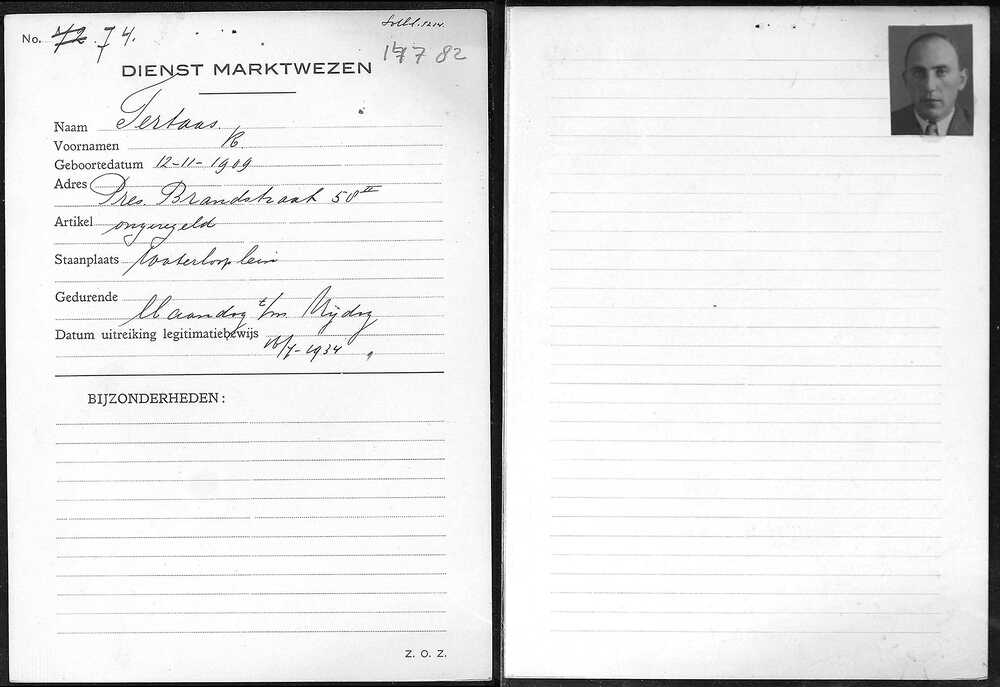 No. 72. 74.
17782
DIENST MARKTWEZEN
Naam Tertaas.
Voornamen K.
Geboortedatum 12-11-1909
Adres Pres. Brandstraat 58 II
Artikel ongeregeld
Staanplaats Waterlooplein
Gedurende
Maandag t/m Vrijdag
Datum uitreiking legitimatiebewijs
16/7-1934
BIJZONDERHEDEN:
Z. O. Z.